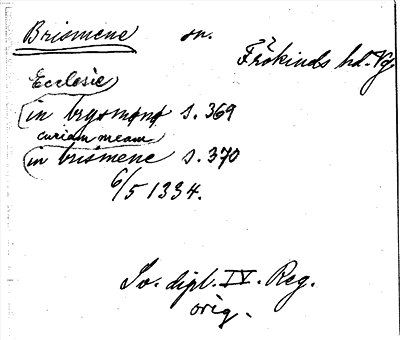 Brismene sn.
Frökinds hd. Vg
Ecclesie
in brysmono s. 369
curiam meam
in brismene s. 370
6/5 1334.
Sv. dipl. IV. Reg.
orig.